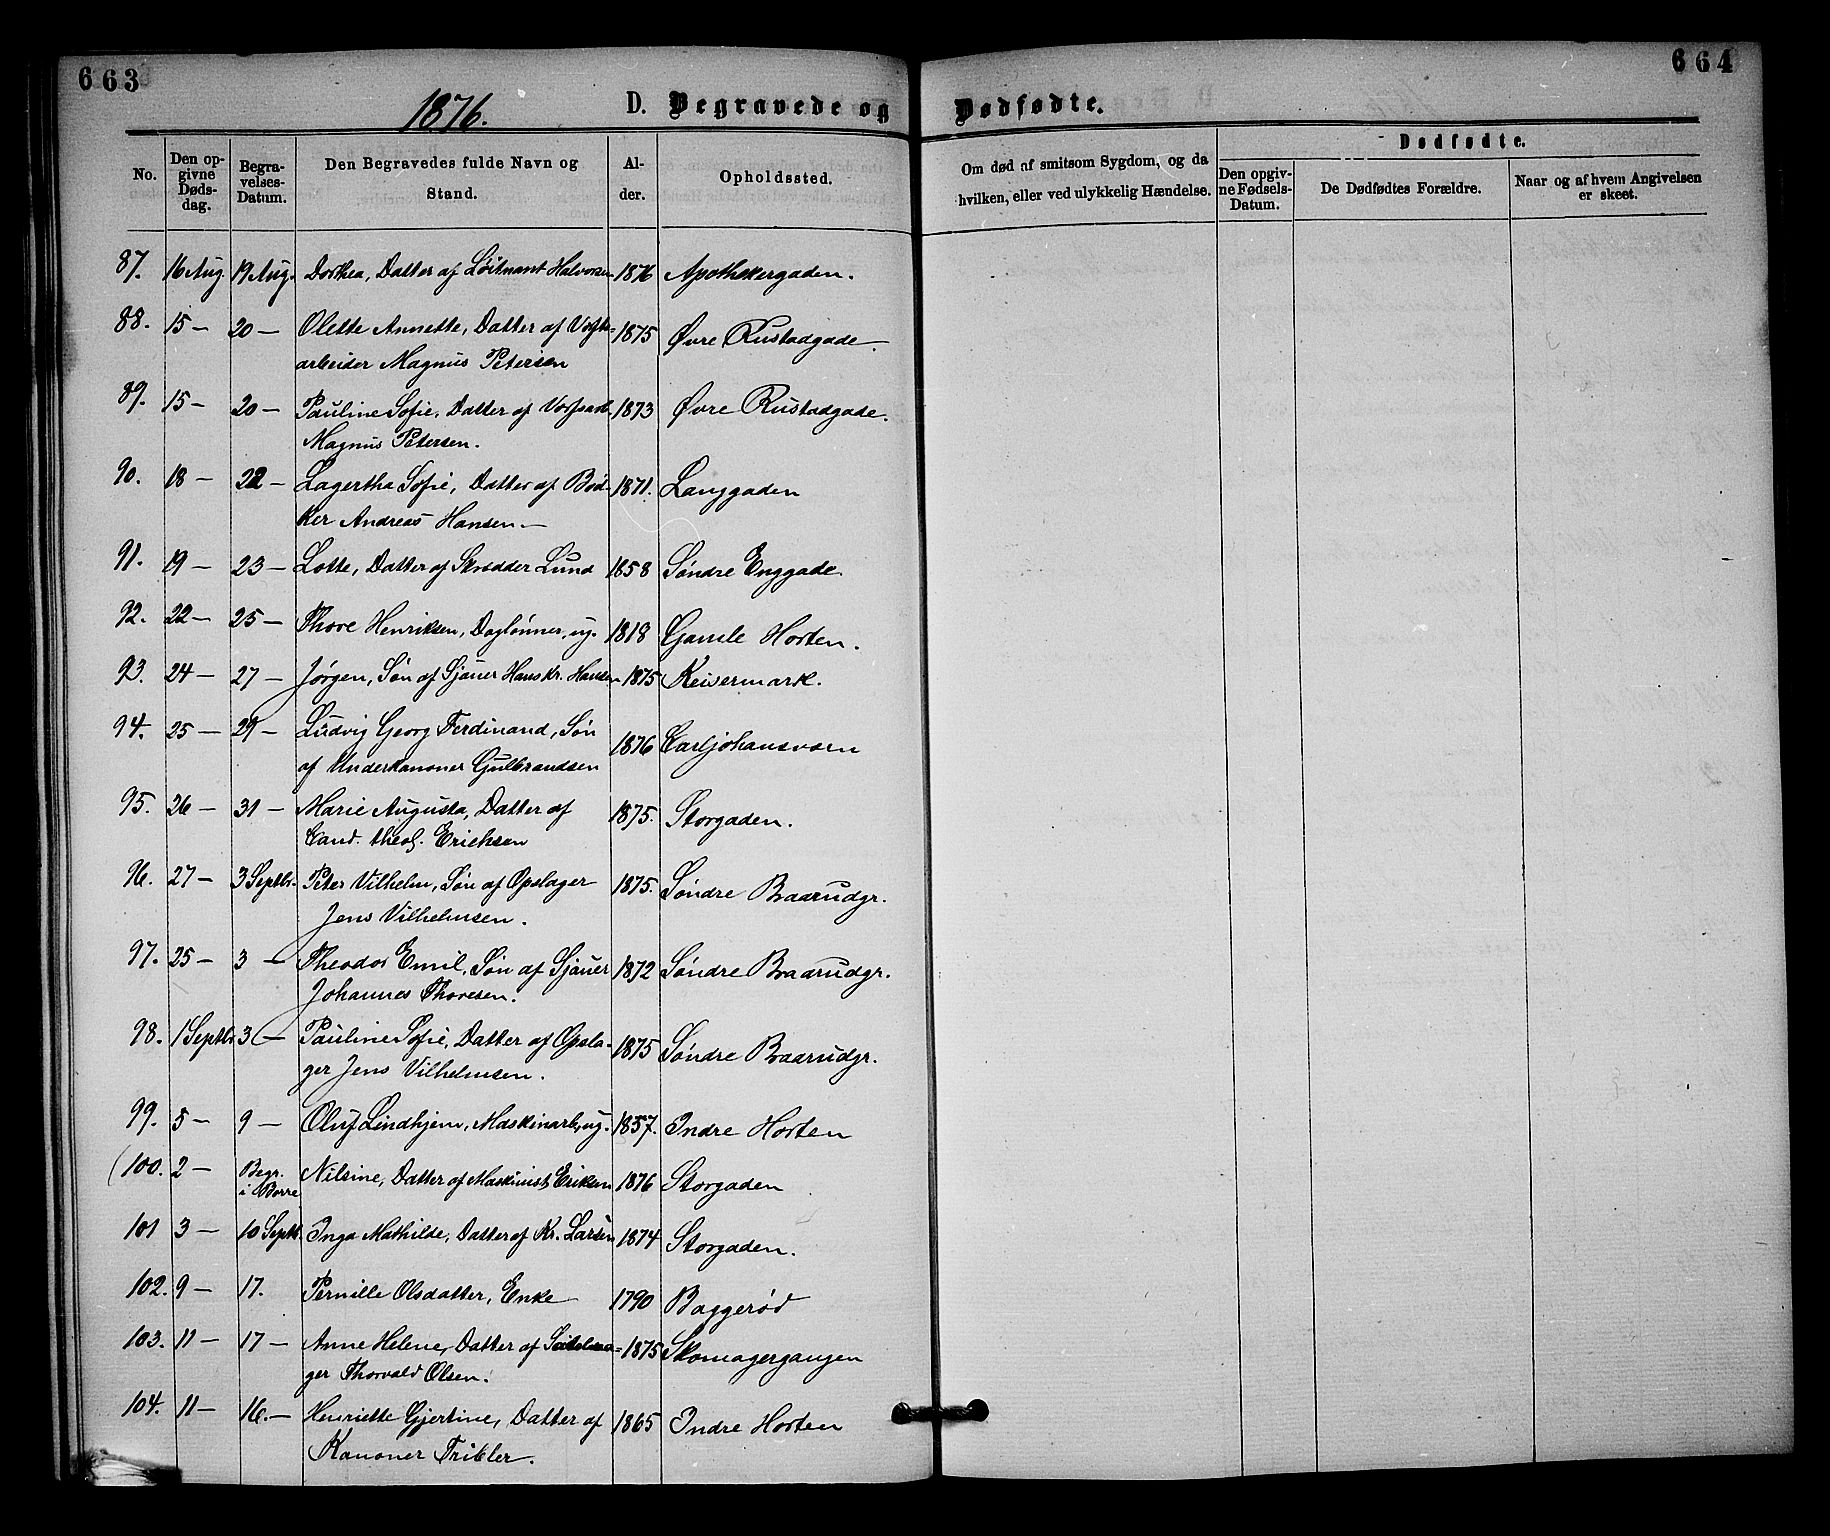 663
664
1876.
D. Begravede og Dødfødte.
No.
Den opgivne Dødsdag.
Begravelses-Datum.
Den Begravedes fulde Navn og Stand.
Alder.
Opholdssted.
Om død af smitsom Sygdom, og da hvilken, eller ved ulykkelig Hændelse.
Dødfødte.
Den opgivne Fødsels-Datum.
De Dødfødtes Forældre.
Naar og af hvem Angivelsen er skeet.
87. 16 Aug. 19 Aug. Dorthea, Datter af Løitnant Halvorsen 1876 Apothekergaden.
88. 15 — 20 — Olette Annette, Datter af Værfts- 1875 Øvre Rustadgade.
arbeider Magnus Petersen
89. 15 — 20 — Pauline Sofie, Datter af 1873 Øvre Rustadgade.
Magnus Petersen.
90. 18 — 22 — Lagertha Sofie, Datter af Bød- 1871. Langgaden
ker Andreas Hansen. —
91. 19 — 23 — Lotte, Datter af Skrædder Lund 1858 Søndre Enggade.
92. 22 — 25 — Thore Henriksen, Daglønner, ug. 1818 Gamle Horten.
93. 24 — 27 — Jørgen, Søn af Sjauer Hans Kr. Hansen 1875 Keisermark.
94. 25 — 29 — Ludvig Georg Ferdinand, Søn 1876 Carljohansværn
af Underkanoner Gulbrandsen
95. 26 — 31 — Marie Augusta, Datter af 1875. Storgaden.
Cand. theol. Ericksen
96. 27 — 3 Septbr. Peter Vilhelm, Søn af Opslager 1875. Søndre Braarudgr.
Jens Vilhelmsen.
97. 25 — 3 — Theodor Emil, Søn af Sjauer 1872 Søndre Braarudgr.
Johannes Thoresen.
98. 1 Septbr. 3 — Pauline Sofie, Datter af Opsla- 1875 Søndre Braarudgr.
ger Jens Vilhelmsen.
99. 5 — 9 — Oluf Lindhjem, Maskinarb., ug. 1857. Indre Horten
(100. 2 — Begr. i Borre Nilsine, Datter af Maskinist Eriksen 1876 Storgaden
101 3 — 10 Septb. Inga Mathilde, Datter af Kr. Larsen 1874 Storgaden.
102. 9 — 17. Pernille Olsdatter, Enke 1790 Baggerød
103. 11 — 17 — Anne Helene, Datter af 1875 Skomagergangen
ger Thorvald Olsen.
104. 11 — 16. — Henriette Gjertine, Datter af 1865 Indre Horten
Kanoner Tribler.